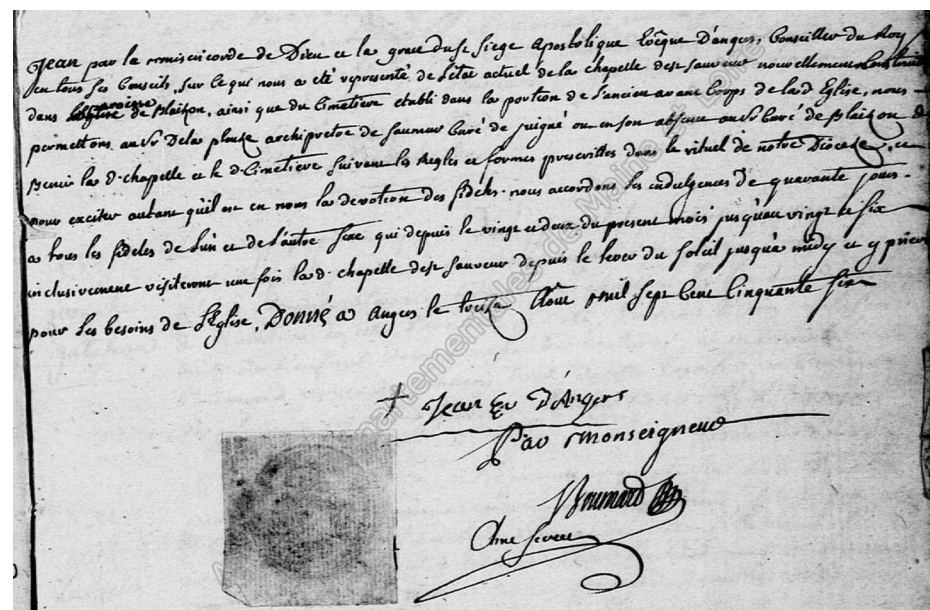 Jean par la misericorde de Dieu et la grace du st Siege Apostolique Evêque D'angers, Conseiller du Roy
en tous ses Conseils, sur ce qui nous a eté representé, de l'état actuel de la chapelle de st sauveur nouvellement construite
dans la paroisse de Blaizon, ainsi que du Cimetiere etabli dans la portion de l'ancien avant Corps de lad. Eglise, nous
permettons au Sr Dela archipretre de saumur Curé de juigné ou en son absence au Sr Curé de Blaizon de
Benir la d. chapelle et le d. Cimetiere suivant les Regles et formes prescrittes dans le rituel de notre Diocese, et
pour exciter autant qu'il est en nous la devotion des fideles. nous accordons les indulgences de quarante jours.
a tous les fideles de l'un et de l'autre sexe qui depuis le vingt et deux du present mois jusqu'au vingt et six
inclusivement visiteront une fois la d. chapelle de st sauveur depuis le lever du soleil jusqu'a midy et y prieront
pour les besoins de l'Eglise, Donné a Angers le treize Aout mil sept Cent Cinquante six
+ Jean Ev. d'Angers
Par Monseigneur
Boumard
Chne Secret
Archives départementales de Maine et Loire